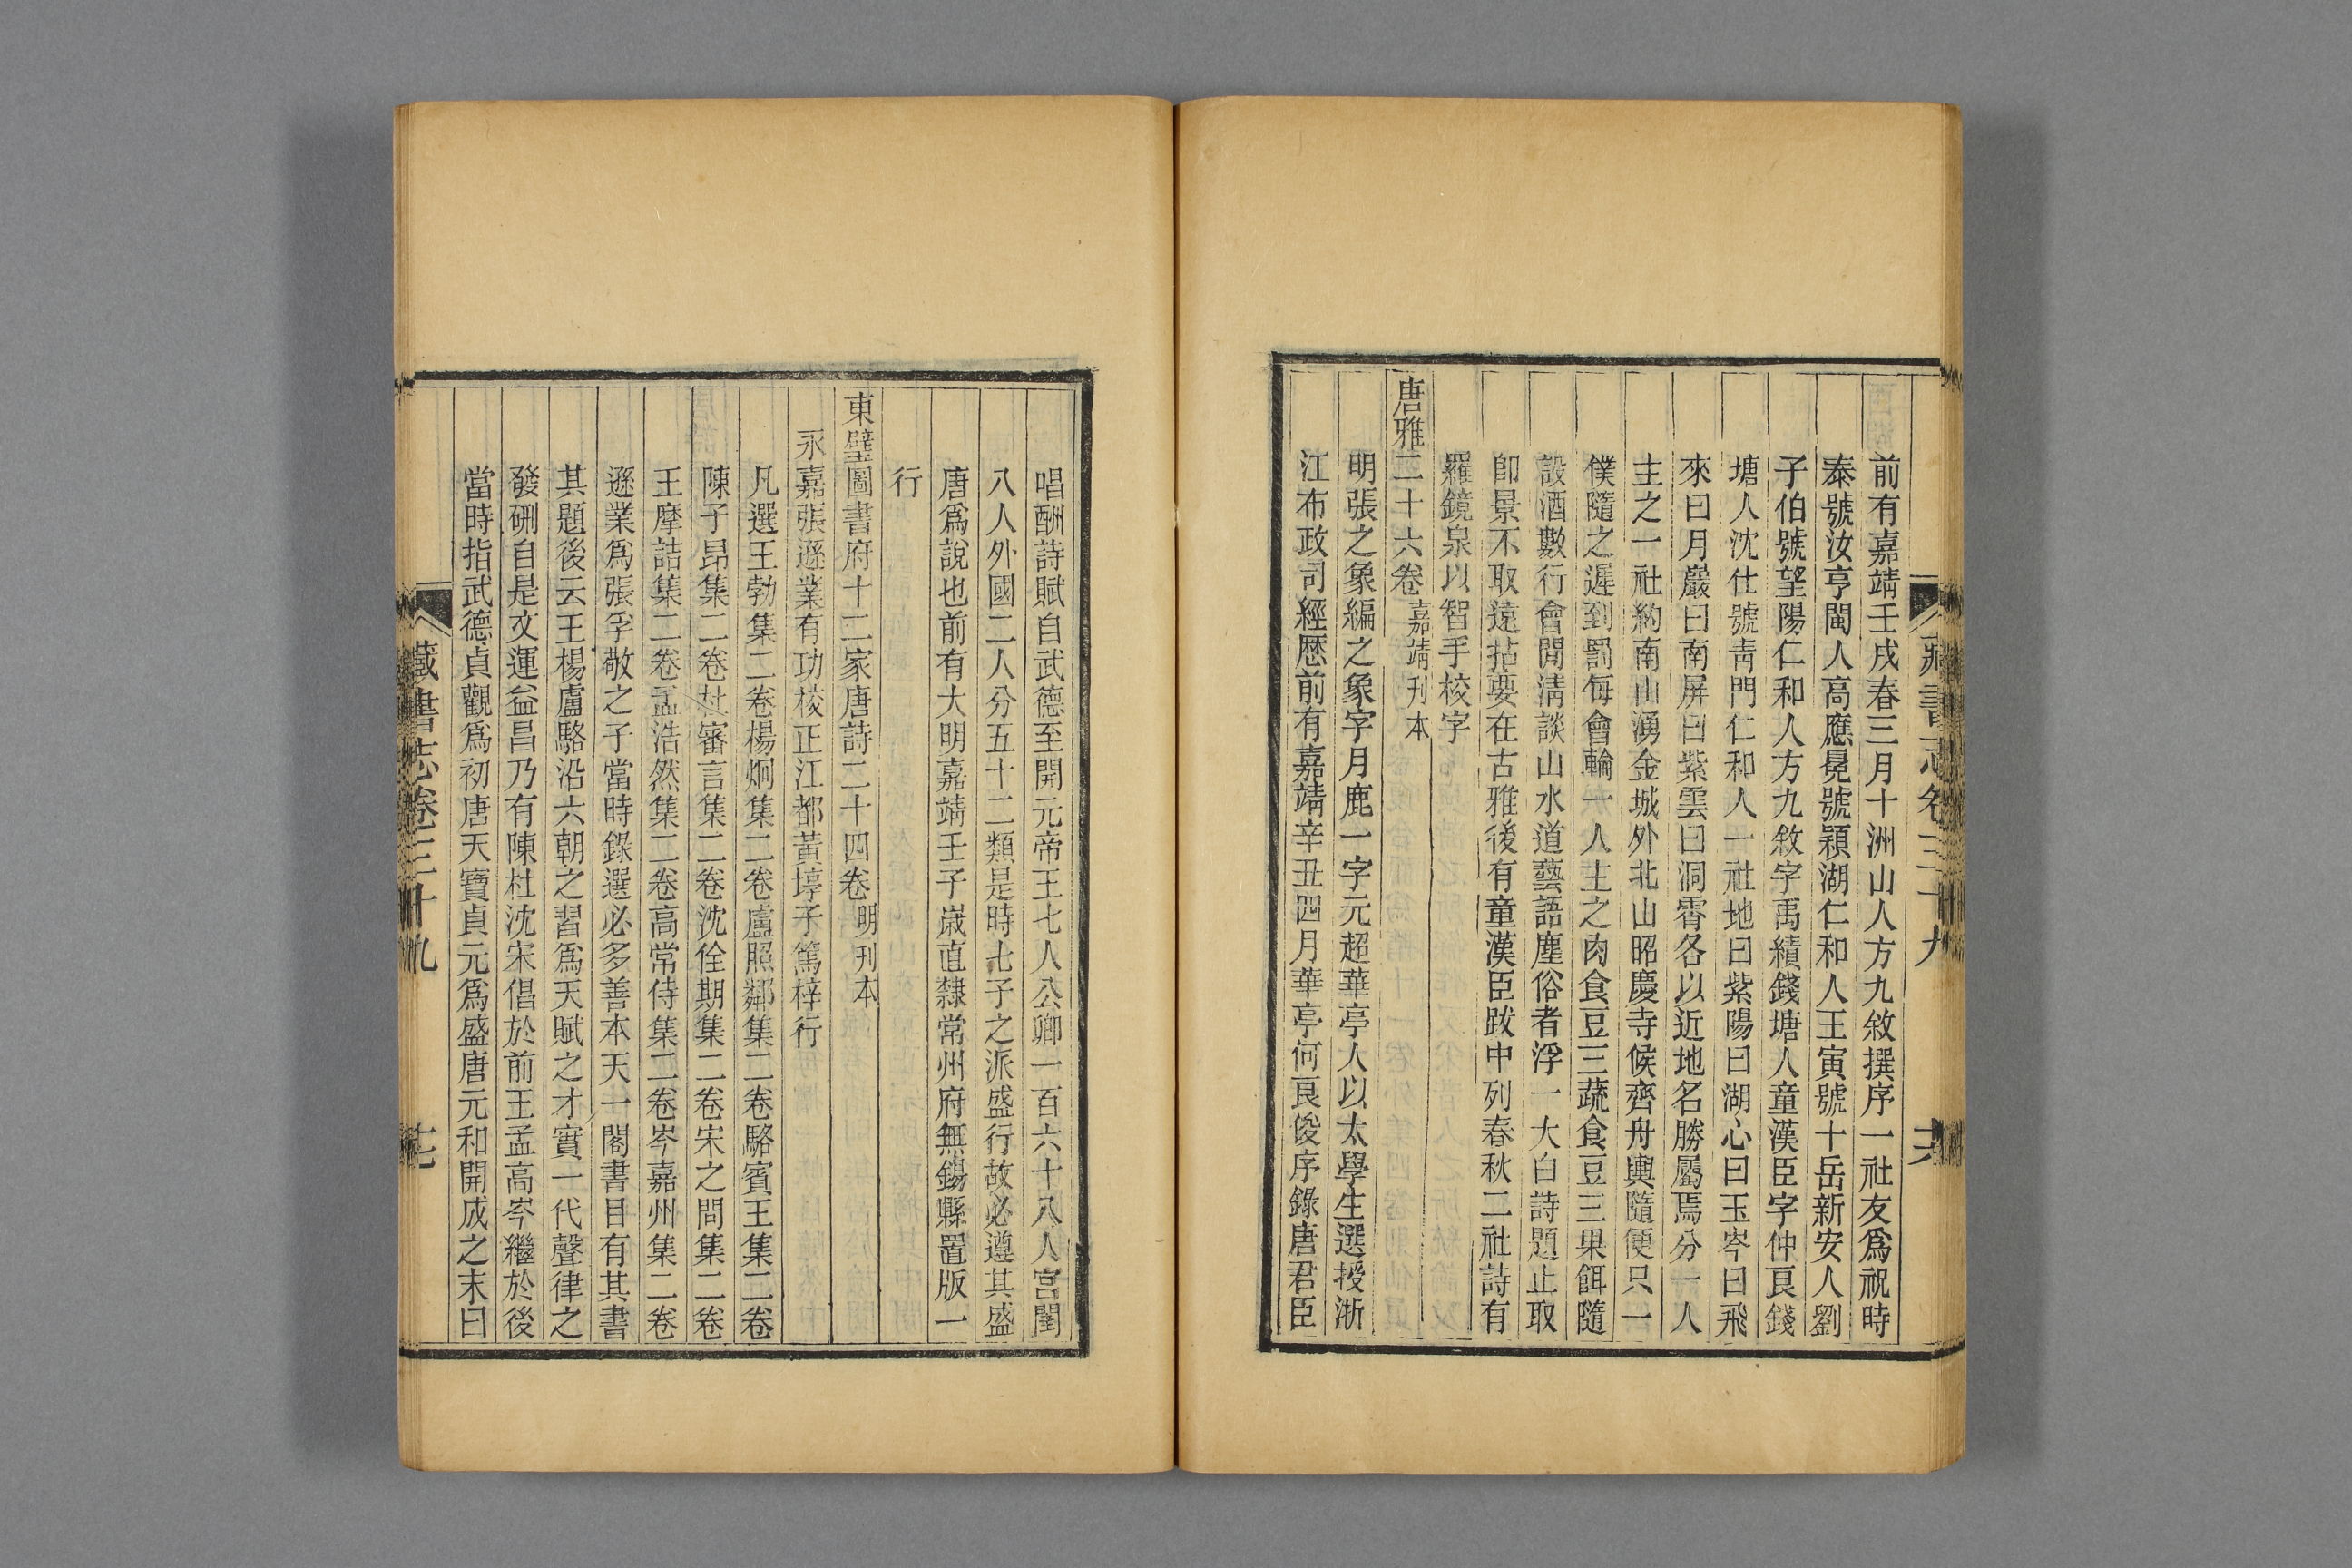 藏書志卷三十九
十六
前有嘉靖壬戌春三月十洲山人方九敘撰序一社友爲祝時
泰號汝亨閩人高應冕號潁湖仁和人王寅號十岳新安人劉
子伯號望陽仁和人方九敘字禹績錢塘人童漢臣字仲良錢
塘人沈仕號靑門仁和人一社地曰紫陽曰湖心曰玉岑曰飛
來曰月巖曰南屏曰紫雲曰洞霄各以近地名勝屬焉分一人
主之一社約南山湧金城外北山昭慶寺候齊舟輿隨便只一
僕隨之遲到罰每會輪一人主之肉食豆三蔬食豆三果餌隨
設酒數行會閒淸談山水道藝語塵俗者浮一大白詩題止取
卽景不取遠拈要在古雅後有童漢臣跋中列春秋二社詩有
羅鏡泉以智手校字
唐雅二十六卷 嘉靖刊本
明張之象編之象字月鹿一字元超華亭人以太學生選授浙
江布政司經歷前有嘉靖辛丑四月華亭何良俊序錄唐君臣
唱酬詩賦自武德至開元帝王七人公卿一百六十八人宮閨
八人外國二人分五十二類是時七子之派盛行故必遵其盛
唐爲說也前有大明嘉靖壬子歲直隸常州府無錫縣置版一
行
東壁圖書府十二家唐詩二十四卷 明刊本
永嘉張遜業有功校正江都黃埻子篤梓行
凡選王勃集二卷楊炯集二卷盧照鄰集二卷駱賓王集二卷
陳子昂集二卷杜審言集二卷沈佺期集二卷宋之問集二卷
王摩詰集二卷孟浩然集二卷高常侍集二卷岑嘉州集二卷
遜業爲張孚敬之子當時錄選必多善本天一閣書目有其書
其題後云王楊盧駱沿六朝之習爲天賦之才實一代聲律之
發硎自是文運益昌乃有陳杜沈宋倡於前王孟高岑繼於後
當時指武德貞觀爲初唐天寶貞元爲盛唐元和開成之末曰
藏書志卷三十九
十七